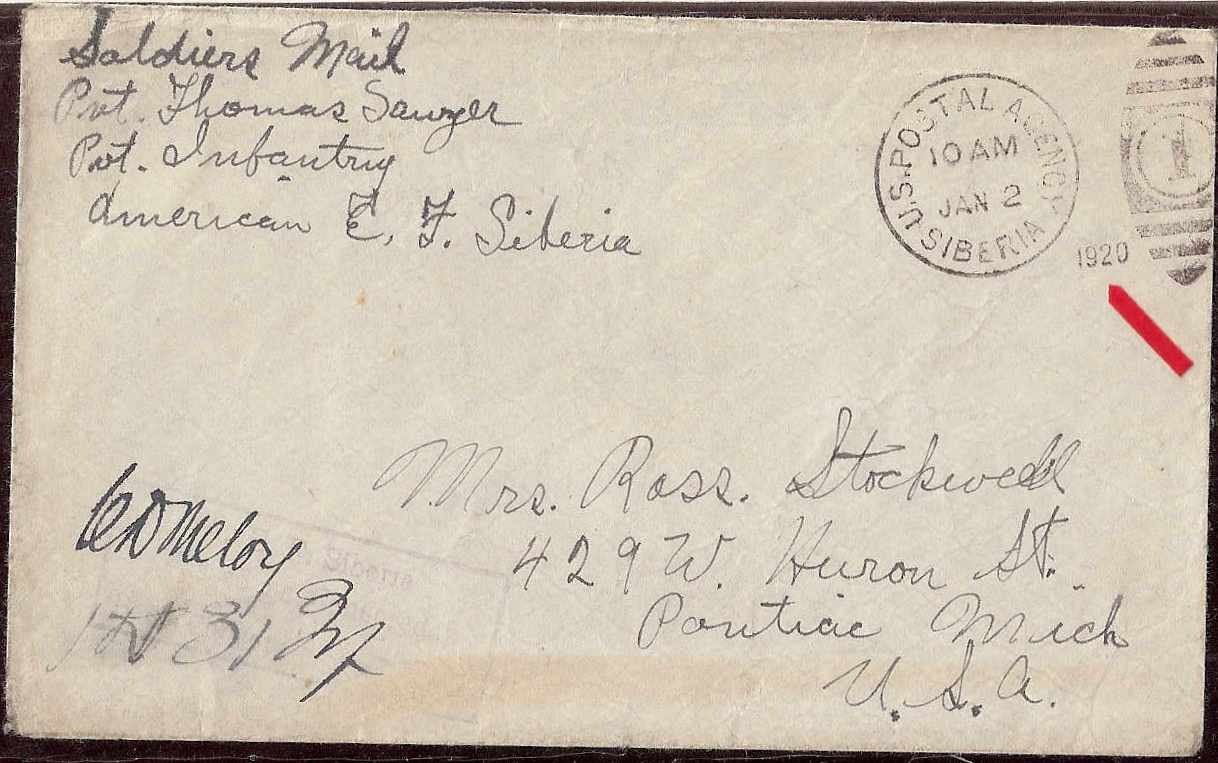 Soldiers Mail
Pvt. Thomas Sawyer
Pvt. Infantry
American E. F. Siberia
U.S. POSTAL AGENCY
10 AM
JAN 2
SIBERIA
1920
1
Mrs. Ross. Stockwell
429 W. Huron St.
Pontiac Mich
U.S.A.
Meloy
Siberia
1st Lt 31 Inf